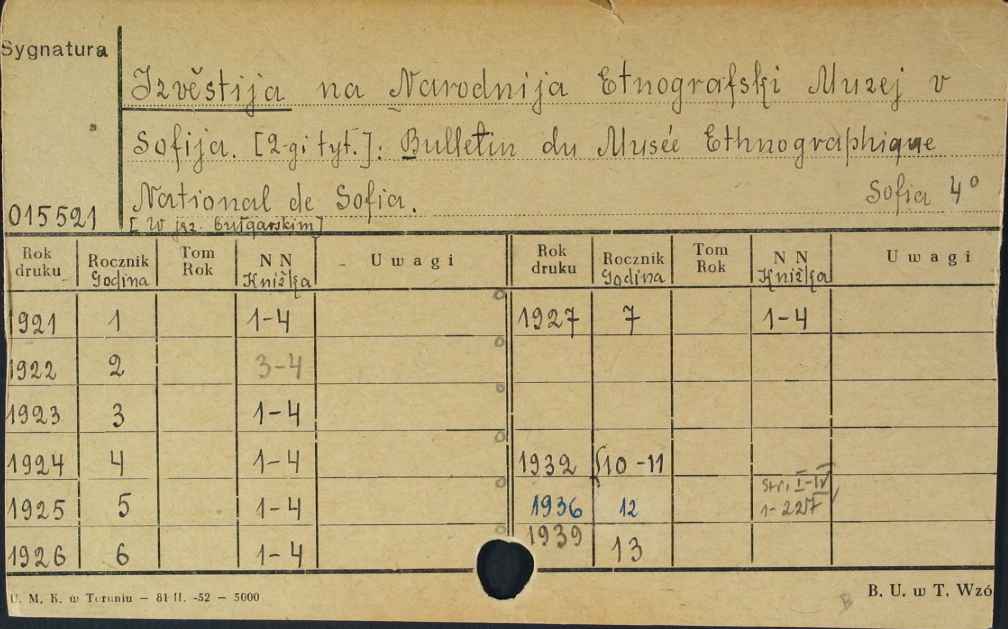 Sygnatura
Izvěstija na Narodnija Etnografski Muzej v
Sofija. [2-gi tyt.]: Bulletin du Musée Ethnographique
National de Sofia. Sofia 4°
015521 [W jęz. bułgarskim]
Rok druku Rocznik Godina Tom Rok N N Knižka Uwagi Rok druku Rocznik Godina Tom Rok N N Knižka Uwagi
1921 1 1-4 1927 7 1-4
1922 2 3-4
1923 3 1-4
1924 4 1-4 1932 10-11
1925 5 1-4 1936 12 str. I-IV 1-227
1926 6 1-4 1939 13
U. M. K. w Toruniu — 81 II. -52 — 5000 B B. U. w T. Wzó